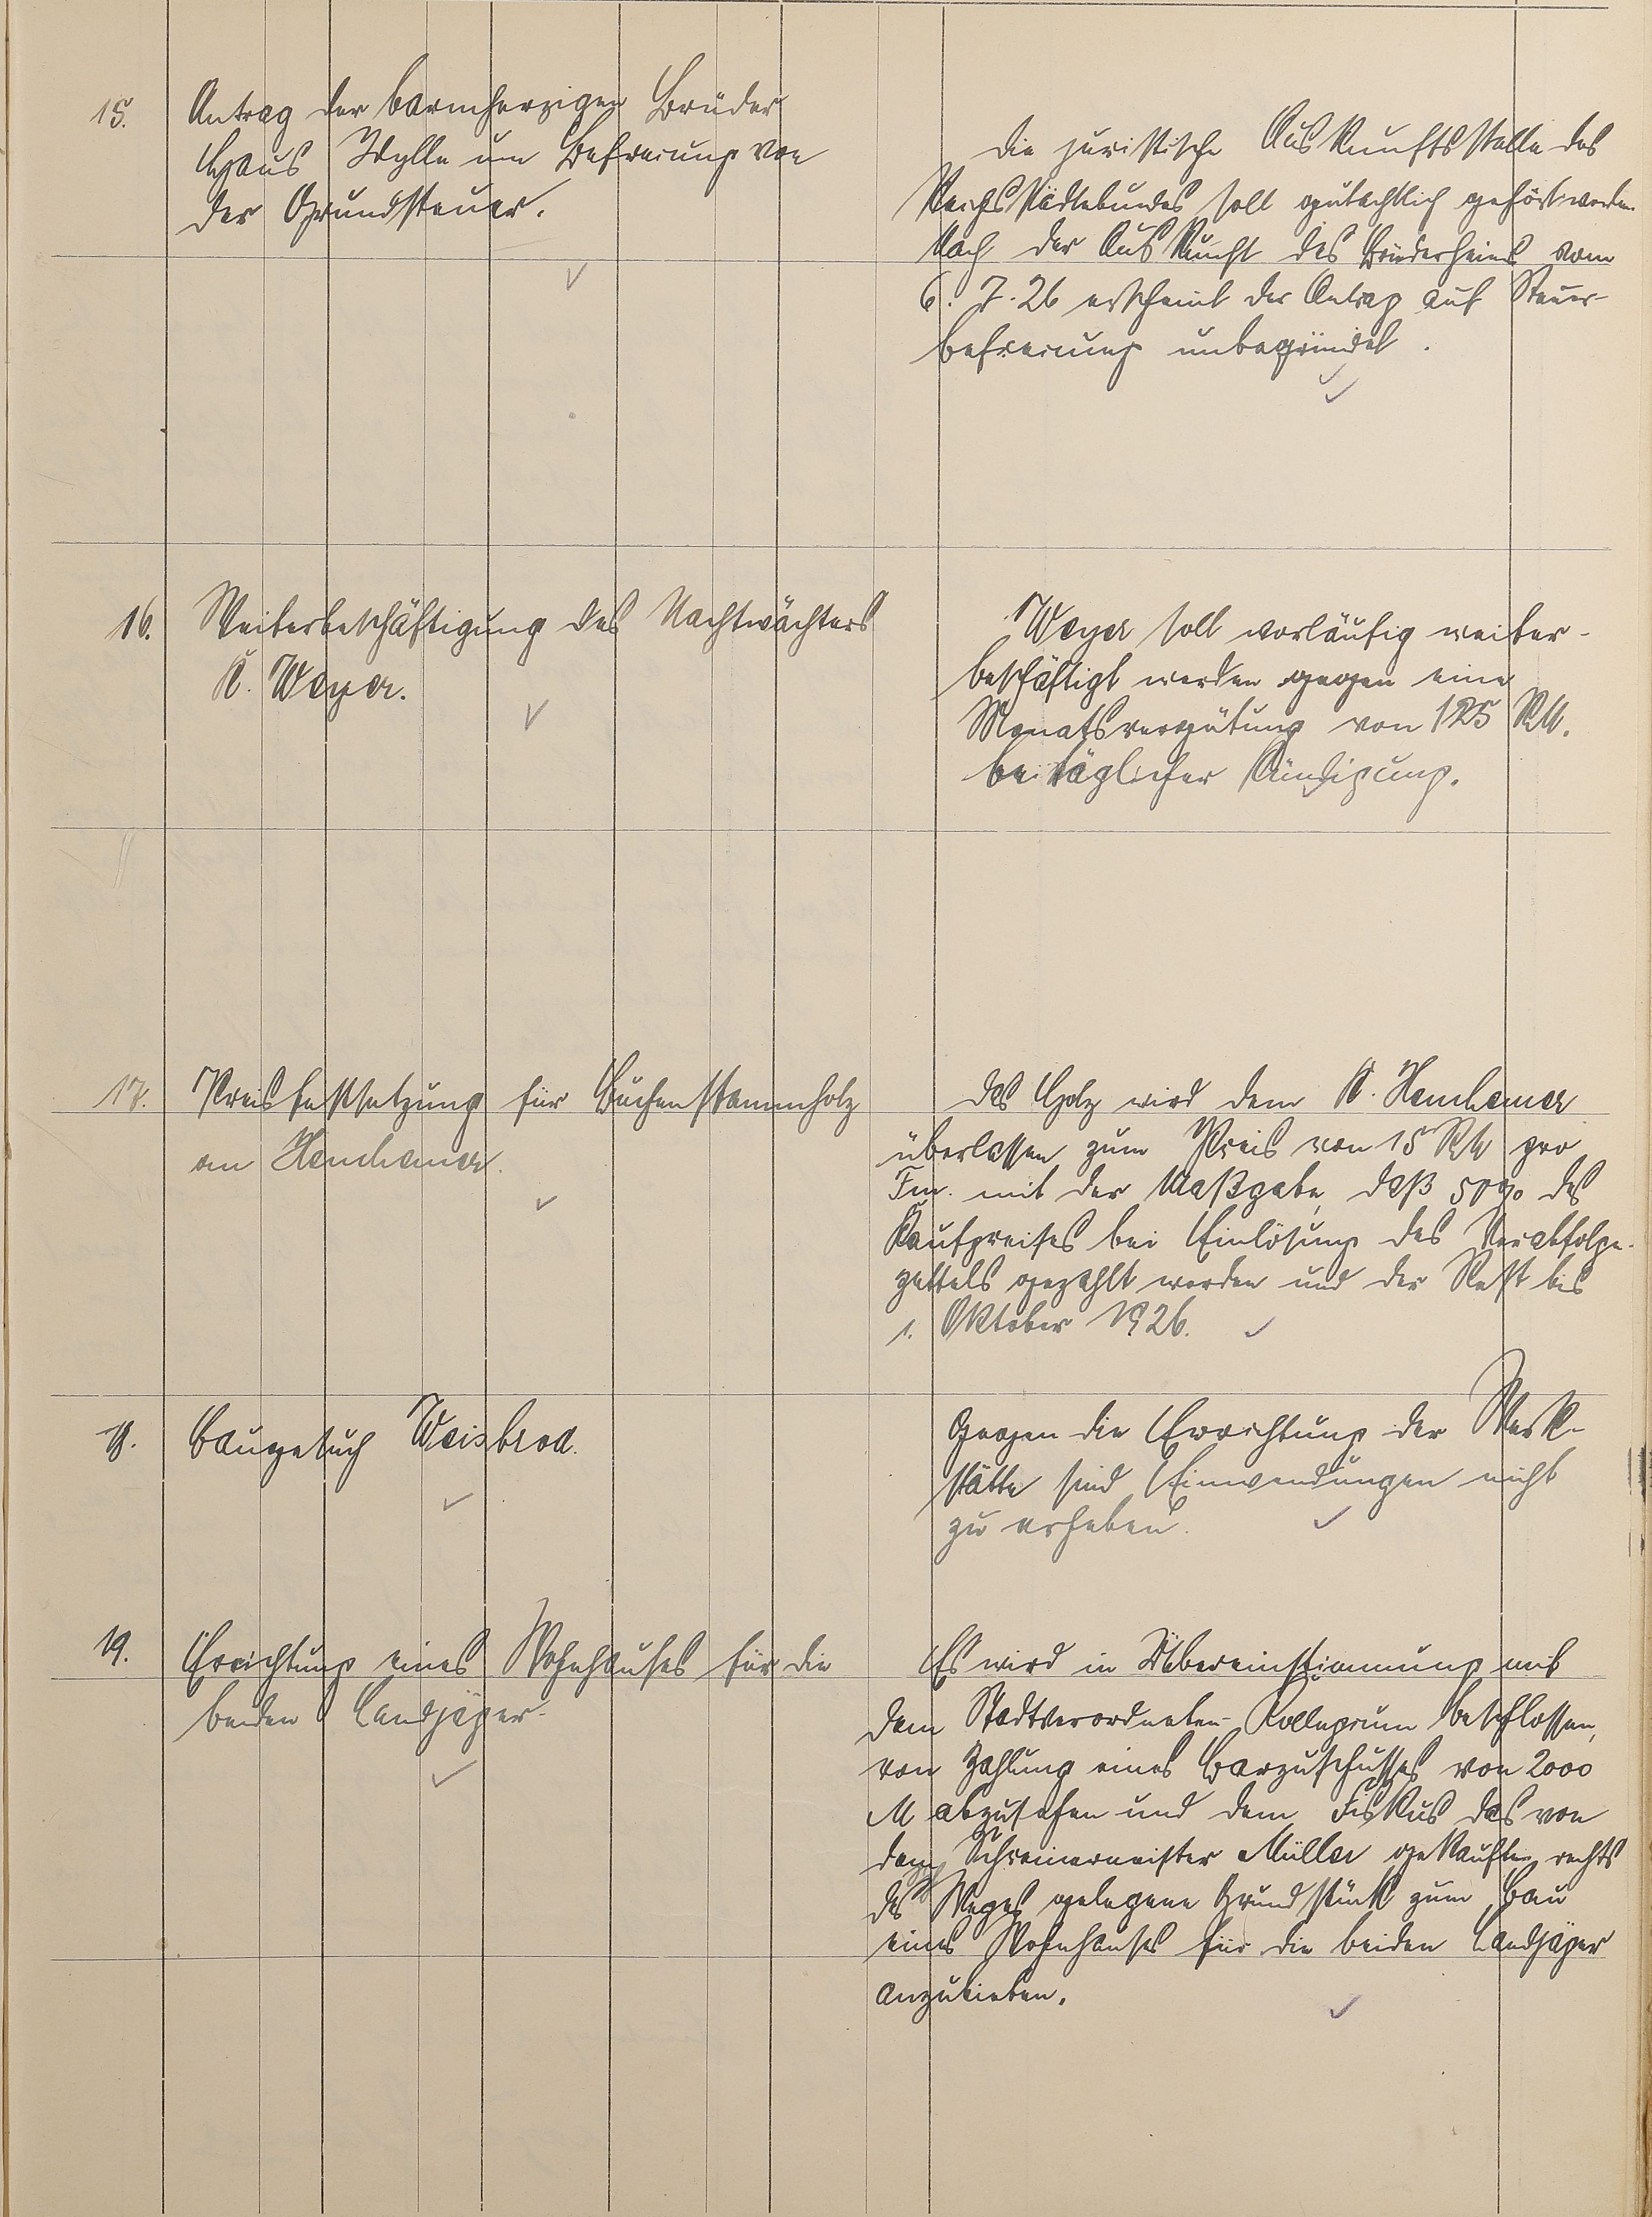 15.
Antrag der barmherzigen Brüder
Haus Idylle um Befreiung von
der Grundsteuer.
Die juristische Auskunftsstelle des
Reichsstädtebundes soll gutachtlich gehört werden
Nach der Auskunft des Brüderheims vom
6. 7. 26 erscheint der Antrag auf Steuer-
befreiung unbegründet.
16.
Weiterbeschäftigung des Nachtwächters
K. Weyer.
Weyer soll vorläufig weiter-
beschäftigt werden gegen eine
Monatsvergütung von 125 RM.
bei täglicher Kündigung.
17.
Preisfestsetzung für Buchenstammholz
an
Das Holz wird dem K.
überlassen zum Preis von 15 RM pro
Fm. mit der Maßgabe, daß 50% des
Kaufpreises bei Einlösung des Verabfolge-
zettels gezahlt werden und der Rest bis
1. Oktober 1926.
18.
Baugesuch Weisbrod.
Gegen die Errichtung der Werk-
stätte sind Einwendungen nicht
zu erheben.
19.
Errichtung eines Wohnhauses für die
beiden Landjäger.
Es wird in Übereinstimmung mit
dem Stadtverordneten-Kollegium beschlossen,
von Zahlung eines Barzuschusses von 2000
M abzusehen und dem Fiskus das von
dem Schreinermeister Müller gekaufte, rechts
des Weges gelegene Grundstück zum Bau
eines Wohnhauses für die beiden Landjäger
anzubieten.